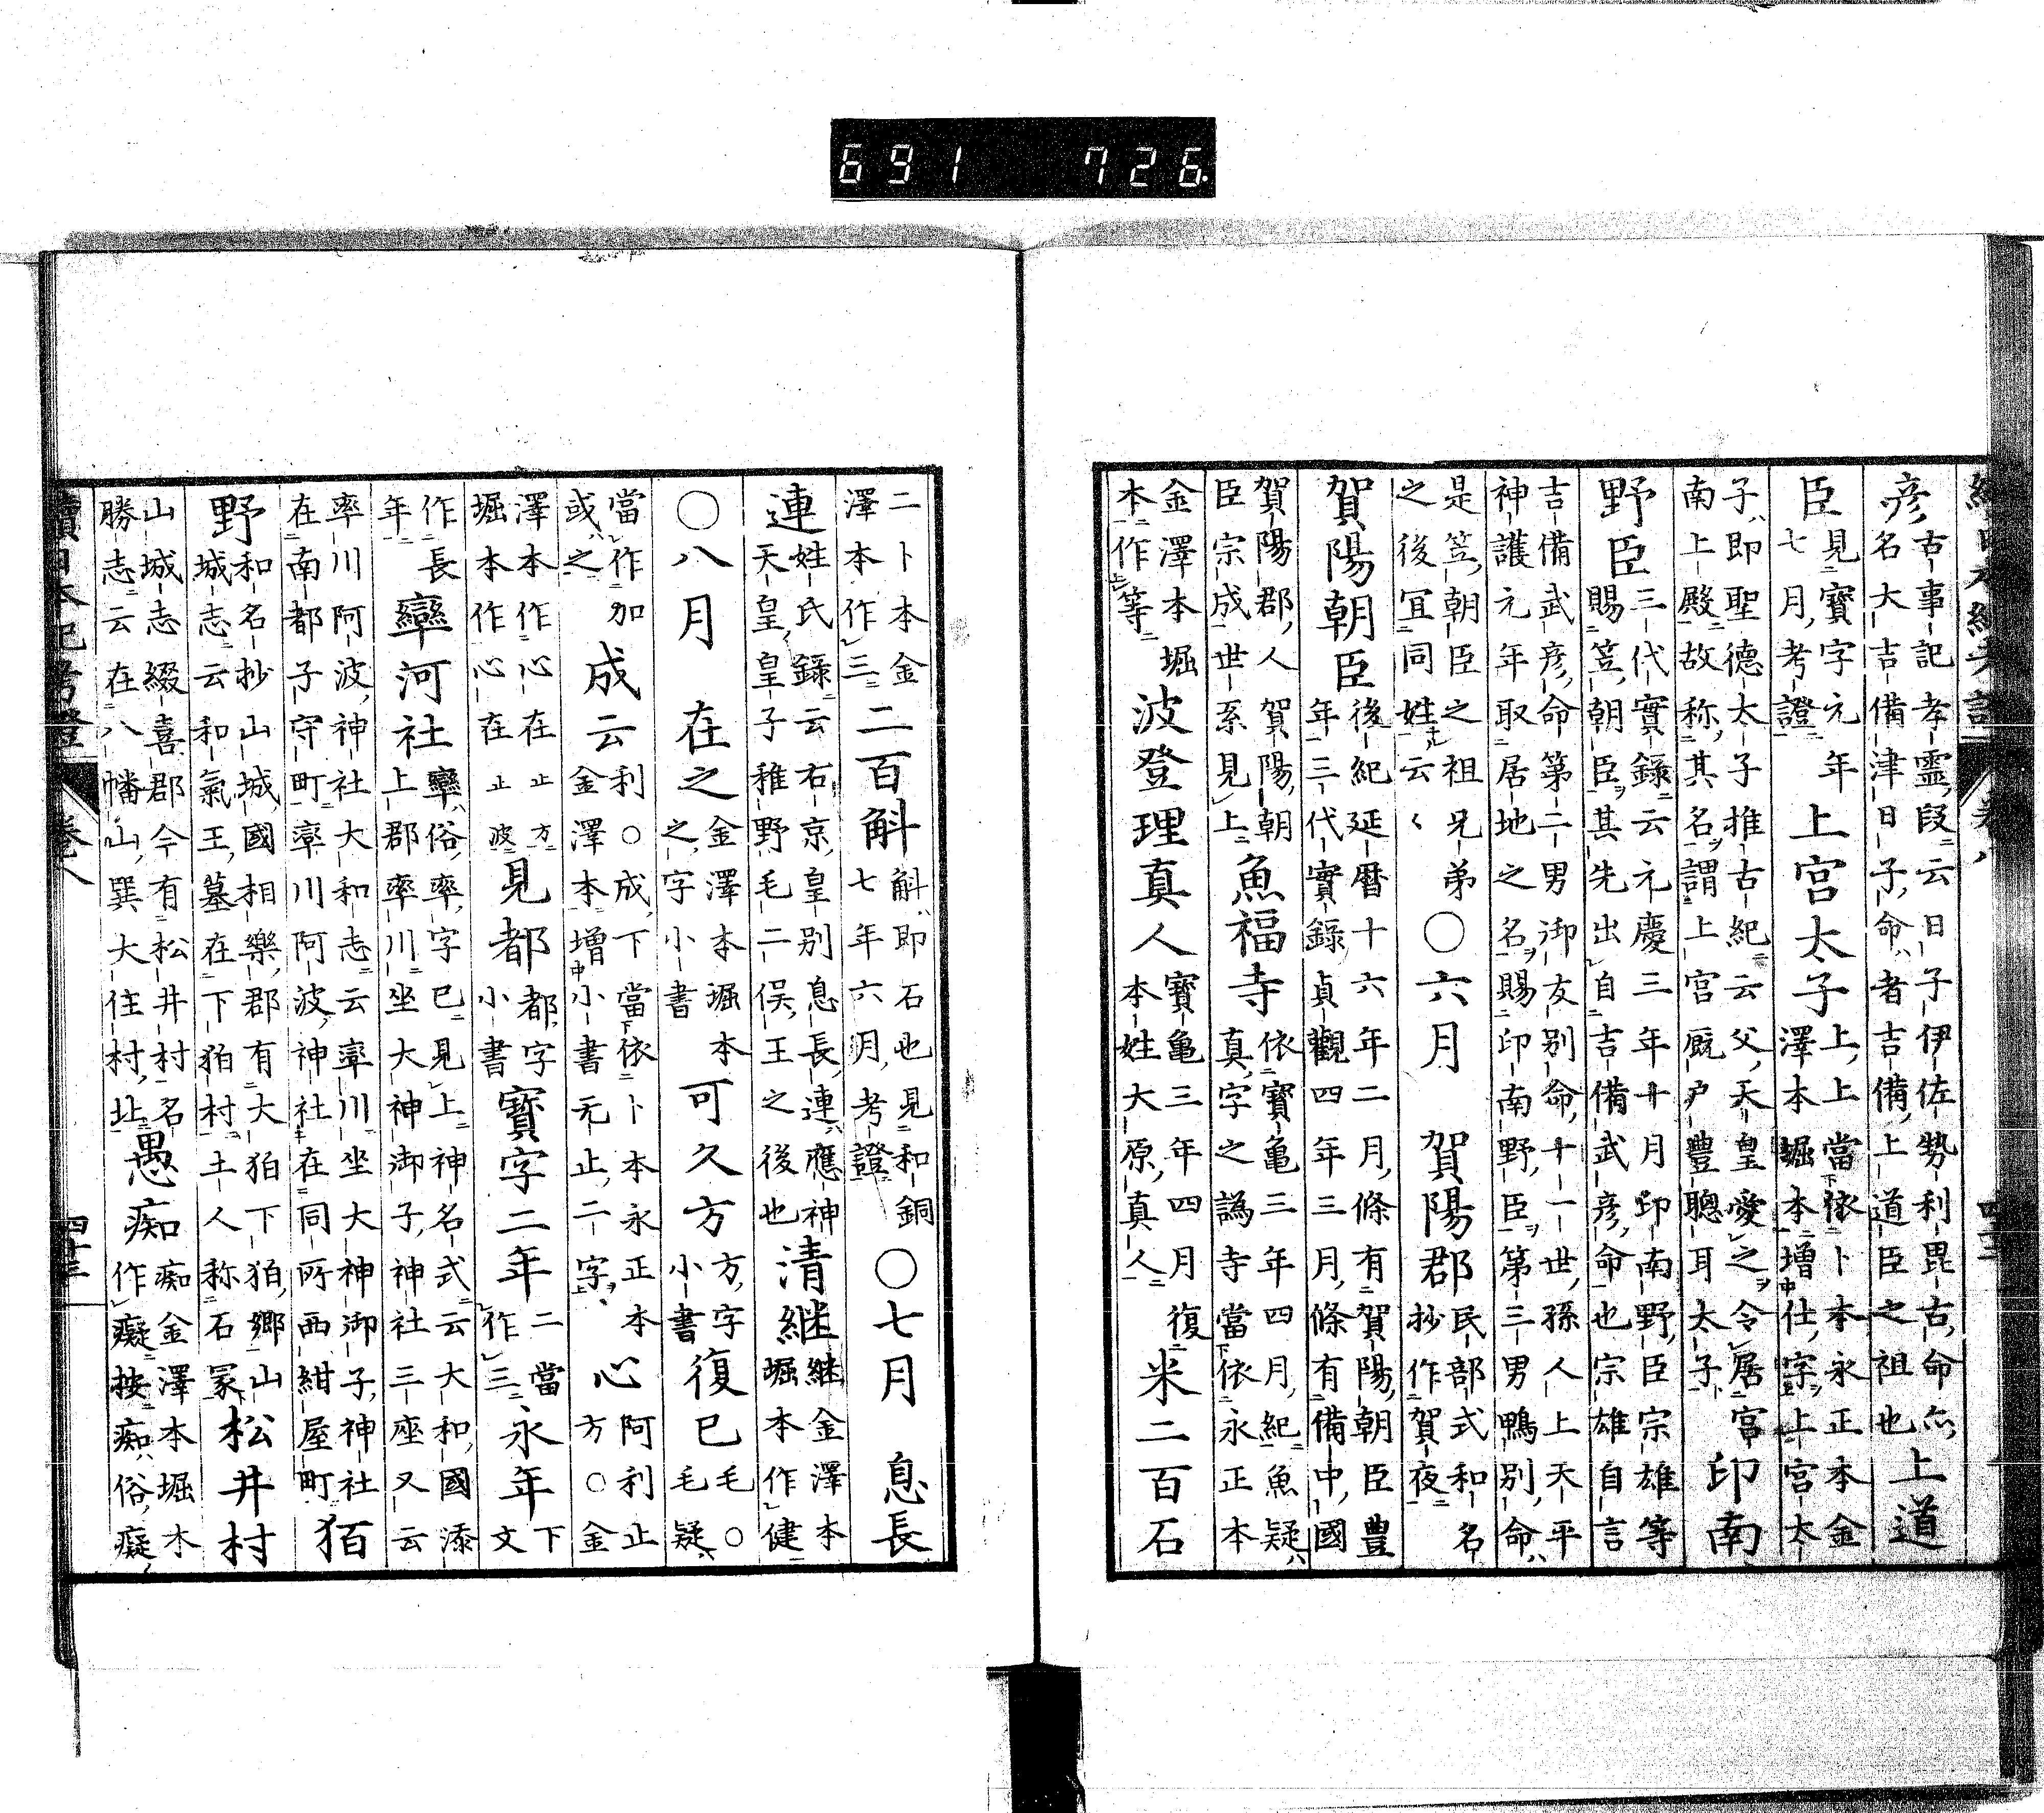 691 726
彦古事記孝靈段云日子伊佐勢利毘古命亦
名大吉備津日子命者吉備上道臣之祖也上道
臣見寶字元年
七月考證上宮太子上上當依卜本永正本金
澤本堀本增仕字上宮太
子即聖德太子推古紀云父天皇愛之令居宮
南上殿故称其名謂上宮厩戸豊聰耳太子印南
野臣三代實錄云元慶三年十月印南野臣宗雄等
賜笠朝臣其先出自吉備武彦命也宗雄自言
吉備武彦命第二男御友別命十一世孫人上天平
神護元年取居地之名賜印南野臣第三男鴨別命
是笠朝臣之祖兄弟
之後冝同姓云〻〇六月 賀陽郡民部式和名
抄作賀夜
賀陽朝臣後紀延暦十六年二月條有賀陽朝臣豊
年三代實錄貞觀四年三月條有備中國
賀陽郡人賀陽朝
臣宗成世系見上魚福寺依寶亀三年四月紀魚疑
真字之譌寺當依永正本
金澤本堀
本作等波登理真人寶亀三年四月復
本姓大原真人米二百石
二卜本金
澤本作三二百斛斛即石也見和銅
七年六月考證〇七月 息長
連姓氏錄云右京皇別息長連應神
天皇皇子稚野毛二俣王之後也清継継金澤本
堀本作健
〇八月 在之金澤本堀本
之字小書可久方方字
小書復巳毛毛〇
毛疑
當作加
或之成云利〇成下當依卜本永正本
金澤本增小書无止二字心阿利止
方〇金
澤本作心在止方
堀本作心在止波見都都字
小書寶字二年二當
作三永年下
文
作長
年㘘河社㘘俗率字巳見上神名式云大和國添
上郡率川坐大神御子神社三座又云
率川阿波神社大和志云率川坐大神御子神社
在南都子守町率川阿波神社在同所西紺屋町狛
野和名抄山城國相樂郡有大狛下狛郷山
城志云和氣王墓在下狛村土人称石冢松井村
山城志綴喜郡今有松井村名
勝志云在八幡山巽大住村北愚痴痴金澤本堀本
作癡按痴俗癡
續日本紀考證 卷八 四十三